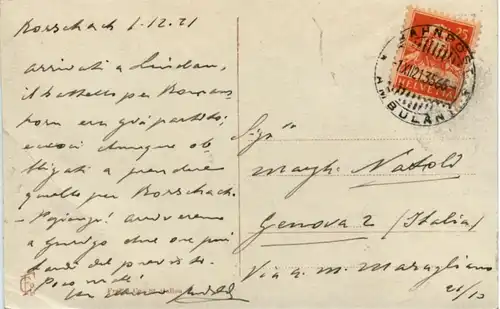 Rorschach 1.12.21
arrivati a Lindau,
il battello per Romans-
horn era già partito;
eccoci dunque ob
bligati a prendere
quello per Rorschach.
- Pazienza! arriveremo
a Zurigo due ore più
tardi del previsto.
Poco male!
25
HELVETIA
BAHNPOST
AMBULANT
-1.XII.21.
Sigra
Margh. Natoli
Genova 2 (Italia)
Via A. M. Maragliano
21/10